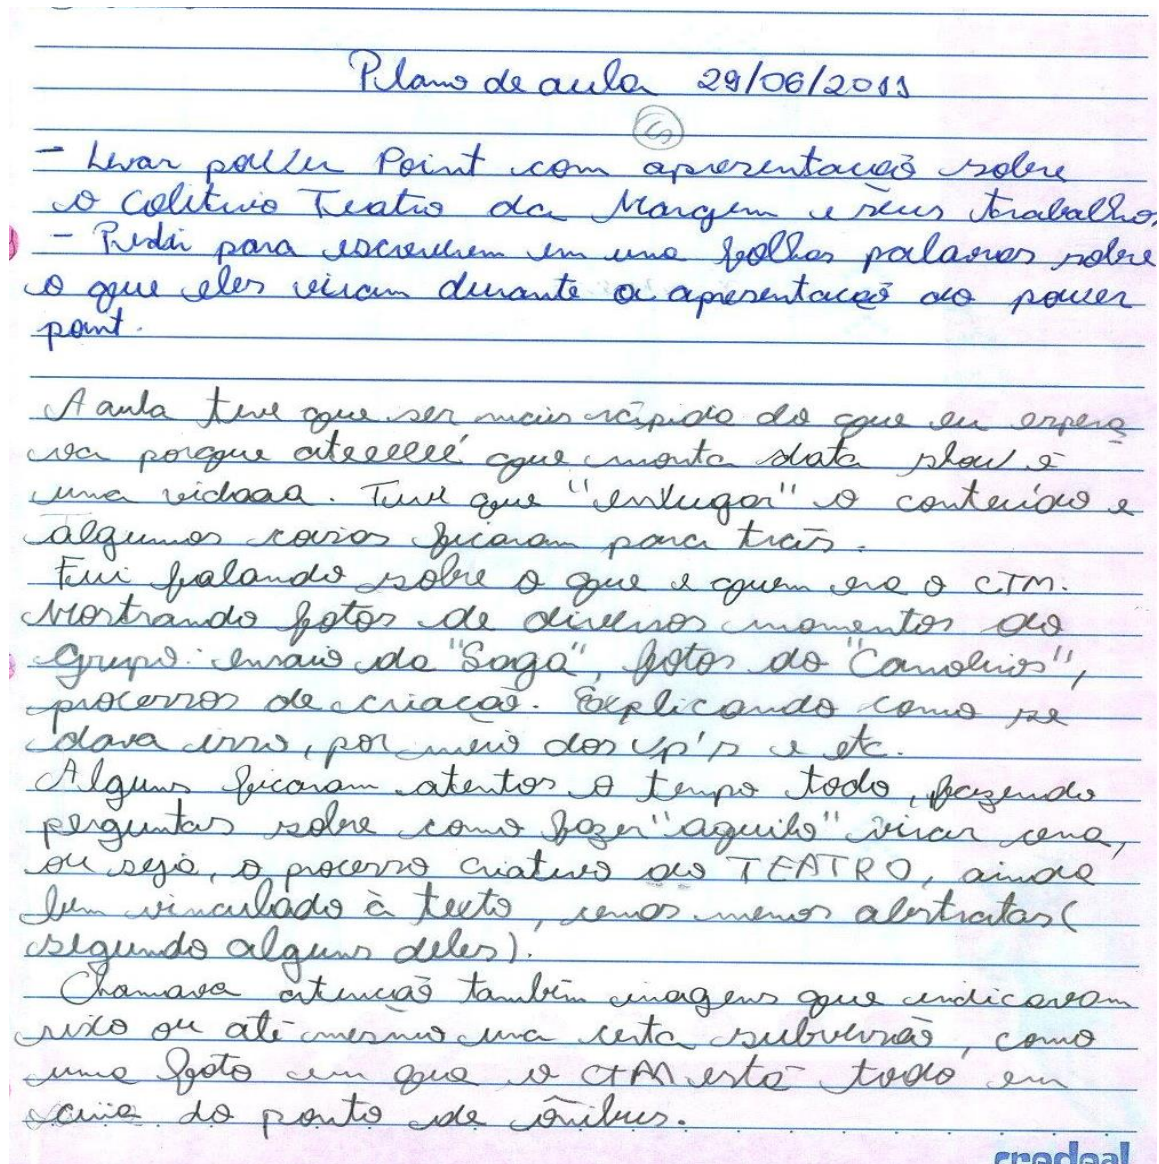 Plano de aula 29/06/2011
- Levar power Point com apresentação sobre
o Coletivo Teatro da Margem e seus trabalhos
- Pedir para escreverem em uma folha palavras sobre
o que eles viram durante a apresentação do power
point.
A aula teve que ser mais rápida do que eu espera
va porque ateeeeé que monta data show é
uma vidaaa. Tive que "enxugar" o conteúdo e
algumas coisas ficaram para trás.
Fui falando sobre o que e quem era o CTM.
Mostrando fotos de diversos momentos do
grupo: ensaio do "Saga", fotos do "Canoeiros",
processos de criação. Explicando como se
dava isso, por meio dos vp's e etc.
Alguns ficaram atentos o tempo todo, fazendo
perguntas sobre como fazer "aquilo" virar cena,
ou seja, o processo criativo do TEATRO, ainda
bem vinculado à texto, cenas menos abstratas (
segundo alguns deles).
Chamava atenção também imagens que indicavam
sexo ou até mesmo uma certa subversão, como
uma foto em que o CTM está todo em
cima do ponto de ônibus.
credeal